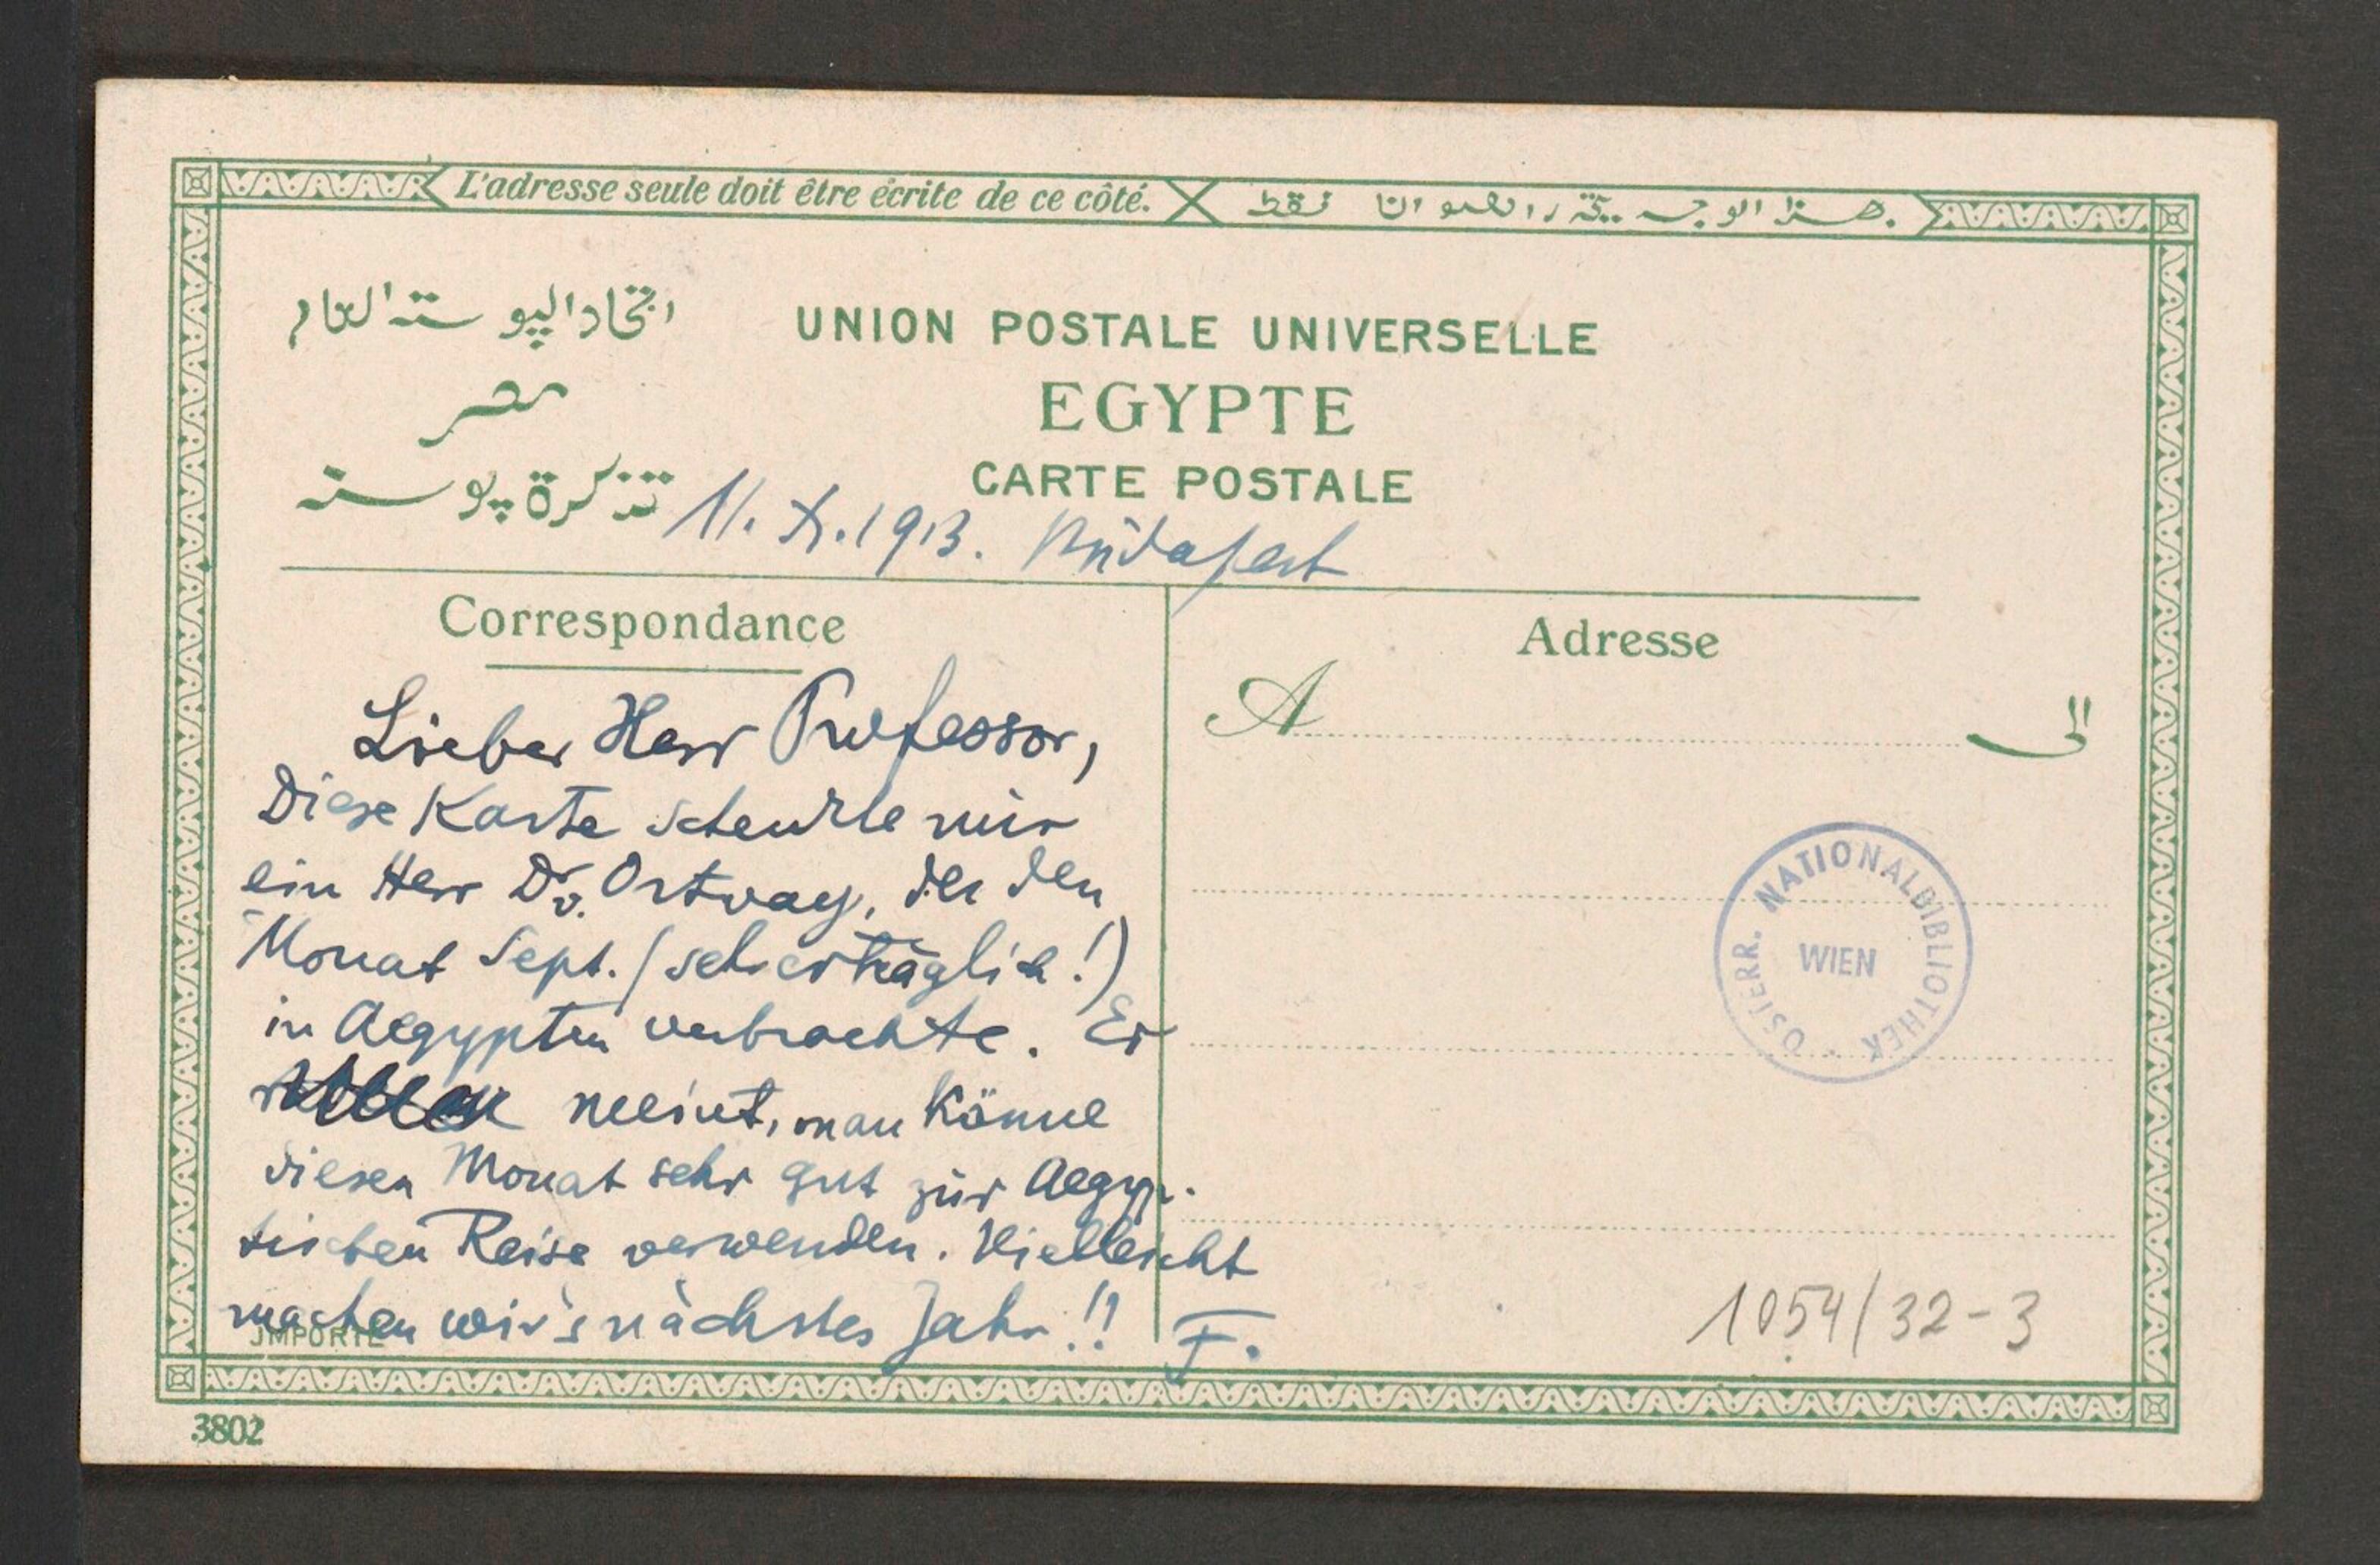 L'adresse seule doit être écrite de ce côté.
UNION POSTALE UNIVERSELLE
اتحاد الپوسته العام
EGYPTE
مصر
CARTE POSTALE
تذكرة پوسته
11. X. 1913. Budapest
Correspondance
Adresse
A
الى
Lieber Herr Professor,
Diese Karte schenkte mir
ein Herr Dr. v. Ortvay, der den
Monat Sept. (sehr erträglich!)
in Aegypten verbrachte. Er
meint, man könne
diesen Monat sehr gut zur Aegyp-
tischen Reise verwenden. Vielleicht
machen wir's nächstes Jahr!! F.
JMPORTÉ
ÖSTERR. NATIONALBIBLIOTHEK
WIEN
1054/32-3
3802